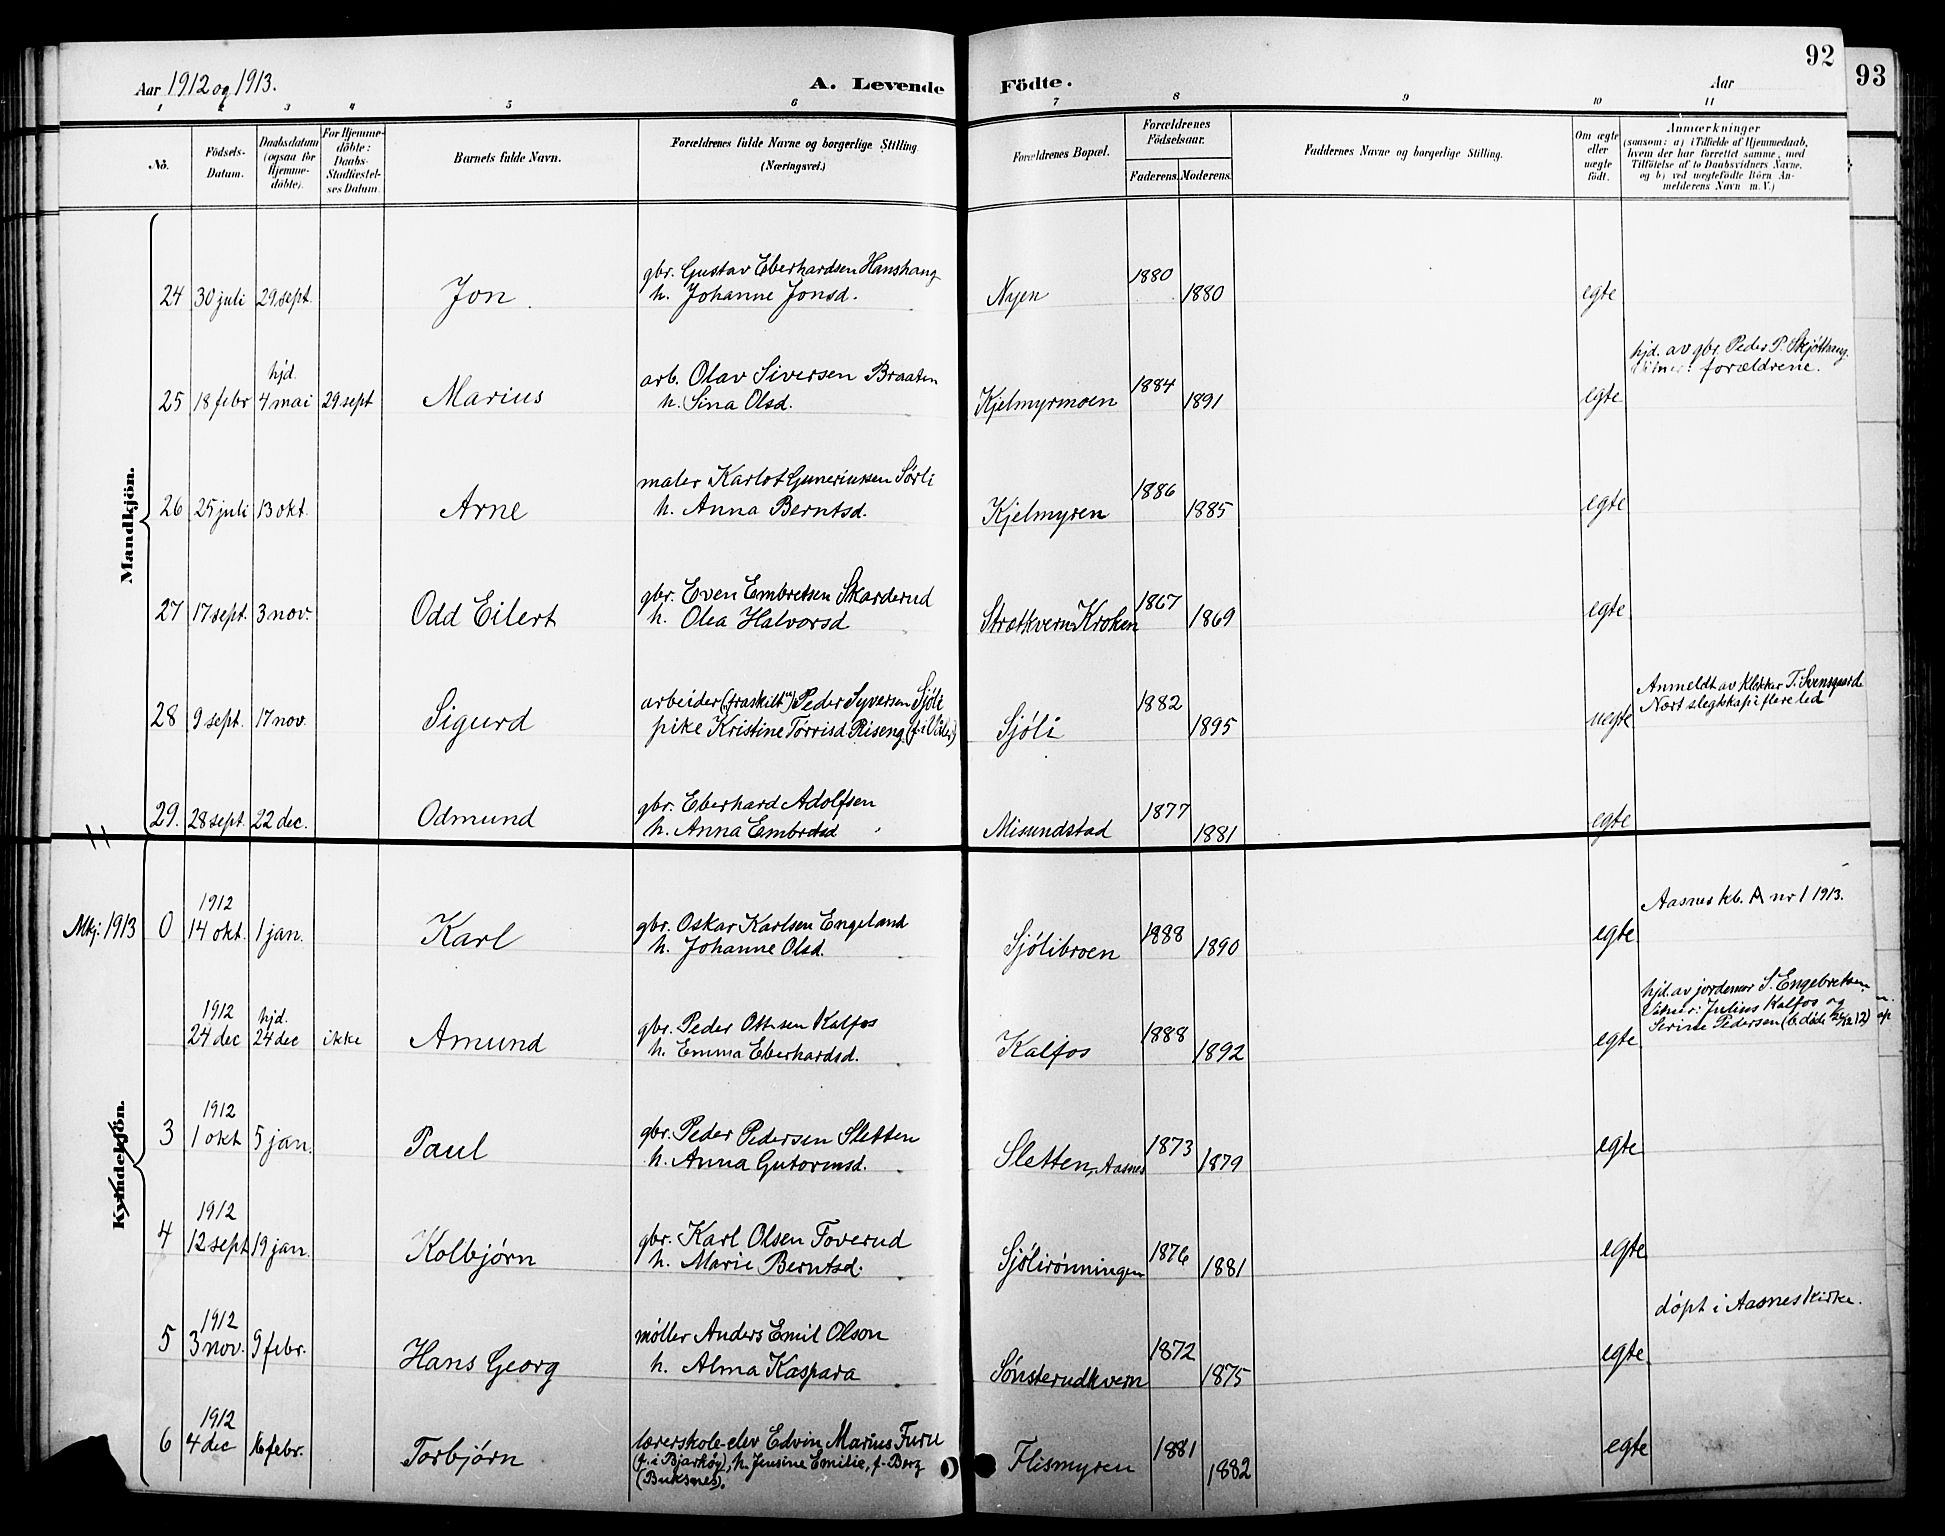 92
93
Aar 1912 og 1913.
A. Levende Födte.
Aar
1 2 3 4 5 6 7 8 9 10 11
No.
Födsels-Datum.
Daabsdatum (ogsaa for Hjemme-döbte).
For Hjemme-döbte: Daabs-Stadfæstel-ses Datum.
Barnets fulde Navn.
Forældrenes fulde Navne og borgerlige Stilling (Næringsvei.)
Forældrenes Bopæl.
Forældrenes Födselsaar.
Faderens. Moderens.
Faddernes Navne og borgerlige Stilling.
Om ægte eller uægte födt.
Anmærkninger
(saasom: a) i Tilfælde af Hjemmedaab,
hvem der har forrettet samme, med
Tilföielse af to Daabsvidners Navne,
og b) ved uægtefödte Börn An-
melderens Navn m. V.)
Mandkjön.
24 30 juli 29. sept. Jon.
gbr. Gustav Eberhardsen Hanshaug
h. Johanne Jonsd.
Nyen 1880 1880 egte
25 18 febr hjd. 4 mai 29 sept Marius
arb. Olav Siversen Braaten
h. Sina Olsd.
Kjelmyrmoen 1884 1891 egte
hjd. av gbr. Peder P. Skjøtthaug.
Vitner: forældrene.
26 25 juli 13 okt. Arne
maler Karlot Guneriussen Sørli
h. Anna Berntsd.
Kjelmyren 1886 1885 egte
27 17 sept. 3 nov. Odd Eilert
gbr. Even Embretsen Skarderud
h. Olea Halvorsd
Strætkvern-Kroken 1867 1869 egte
28 9 sept. 17 nov. Sigurd
arbeider (fraskilt) Peder Syversen Sjöli
pike Kristine Tørrisd. Riseng (f. i Våler)
Sjöli 1882 1895 uegte
Anmeldt av klokker T. Svensgaard
Nært slegtskap i flere led
29. 28 sept. 22 dec. Odmund
gbr. Eberhard Adolfsen
h. Anna Embretsd
Misundstad 1877 1881 egte
Mkj: 1913
Kvindekjön.
0 1912 14 okt. 1 jan. Karl
gbr. Oskar Karlsen Engeland
h. Johanne Olsd.
Sjölibroen 1888 1890 egte
Aasnes kb. A nr 1 1913.
1912 24 dec hjd. 24 dec ikke Amund
gbr. Peder Ottesen Kalfos
h. Emma Eberhardsd.
Kalfos 1888 1892 egte
hjd. av jordemor S. Engebretsen.
Vitner: Julius Kalfos og
Serine Pedersen
3 1912 1 okt 5 jan. Paul
gbr. Peder Pedersen Sletten
h. Anna Gutormsd.
Sletten, Aasnes 1873 1879 egte
4 1912 12 sept 19 jan. Kolbjørn
gbr. Karl Olsen Toverud
h. Marie Berntsd.
Sjölirönningen 1876 1881 egte
5 1912 3 nov. 9 febr. Hans Georg
møller Anders Emil Olson
h. Alma Kaspara
Sönsterudkvern 1872 1875 egte
døpt i Aasnes kirke.
6 1912 4 dec 16 febr. Torbjørn
lærerskole-elev Edvin Marius Furu
(f. i Bjarköy), h. Jensine Emilie, f. Berg
(Buksnes).
Flismyren 1881 1882 egte